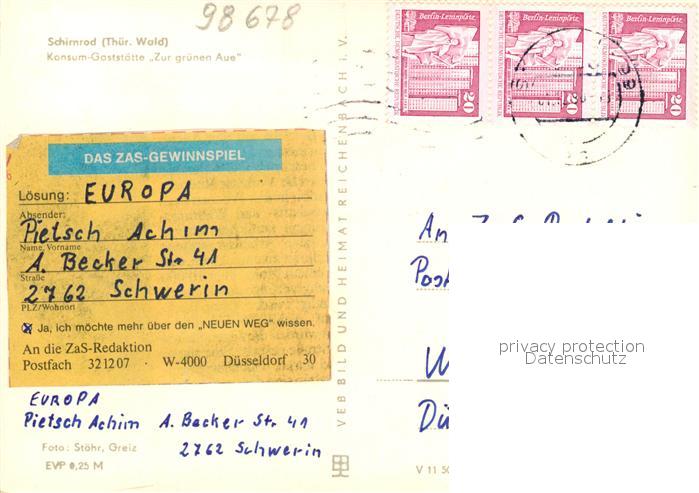 98678
Schirnrod (Thür. Wald)
Konsum-Gaststätte „Zur grünen Aue"
Berlin-Leninplatz
20
Berlin-Leninplatz
20
Berlin-Leninplatz
20
DAS ZAS-GEWINNSPIEL
Lösung: EUROPA
Absender:
Pietsch Achim
Name, Vorname
A. Becker Str 41
Straße
2762 Schwerin
PLZ/Wohnort
Ja, ich möchte mehr über den „NEUEN WEG" wissen.
An die ZaS-Redaktion
Postfach 321207 · W-4000 Düsseldorf 30
EUROPA
Pietsch Achim A. Becker Str. 41
2762 Schwerin
Foto: Stöhr, Greiz
EVP 0,25 M
VEB BILD UND HEIMAT REICHENBACH i. V.
An
Post
W
Dü
V 11 50
privacy protection
Datenschutz